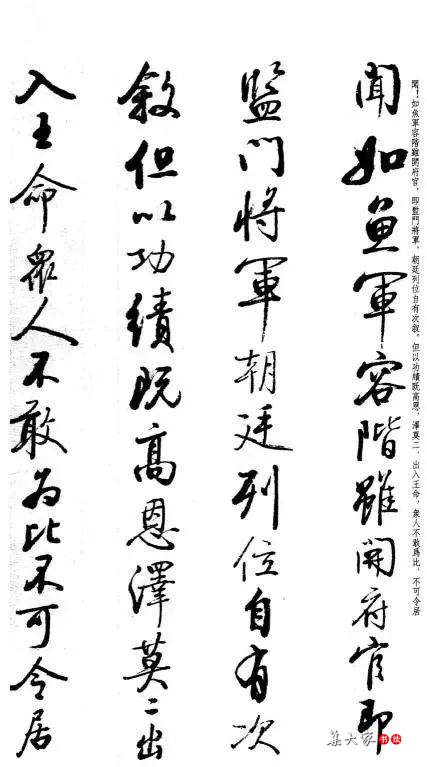 聞！如魚軍容階雖開府官，即監門將軍，朝廷列位自有次叙，但以功績既高恩，澤莫二，出入王命，衆人不敢爲比，不可令居
聞如魚軍容階雖開府官即
監門將軍朝廷列位自有次
敘但以功績既高恩澤莫二出
入王命衆人不敢為比不可令居
集大家书法